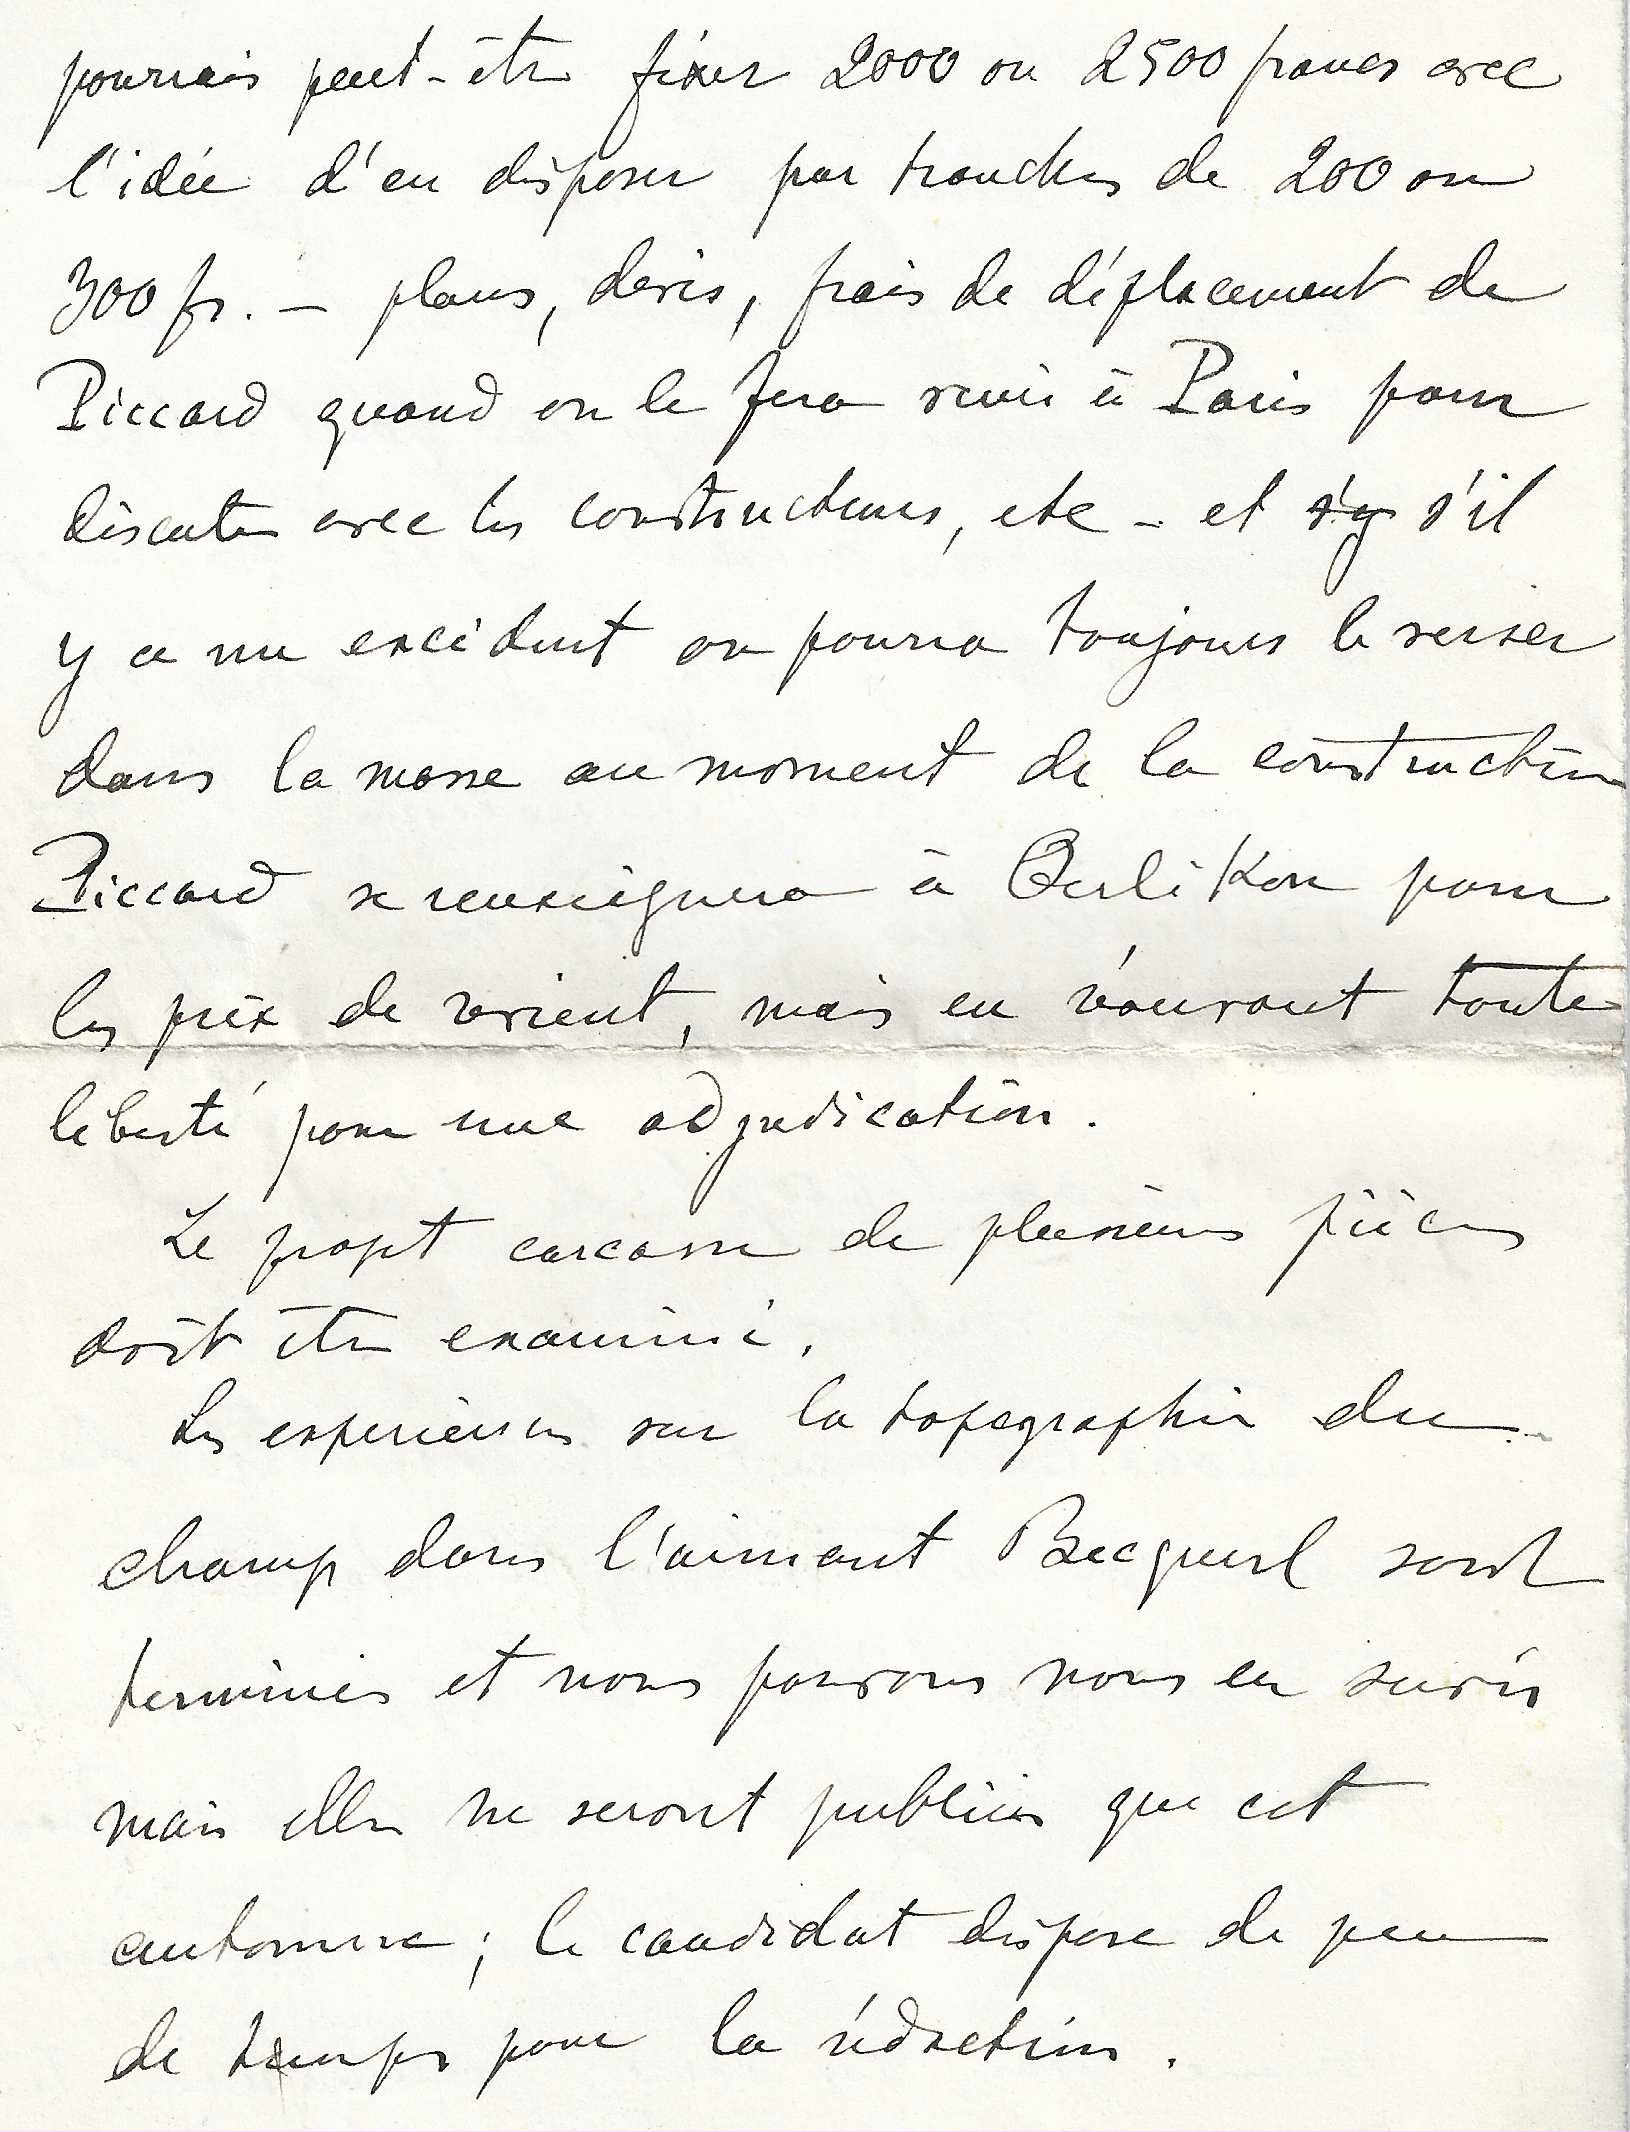 pourrais peut-être fixer 2000 ou 2500 francs avec
l'idée d'en disposer par tranches de 200 ou
300 fr. – plans, devis, frais de déplacement de
Piccard quand on le fera venir à Paris pour
discuter avec les constructeurs, etc – et s'y s'il
y a un excédent on pourra toujours le verser
dans la masse au moment de la construction
Piccard se renseignera à Oerlikon pour
les prix de revient, mais en réservant toute
liberté pour une adjudication.
Le projet carcasse de plusieurs pièces
doit être examiné.
Les expériences sur la topographie du
champ dans l'aimant Becquerel sont
terminées et nous pouvons nous en servir
mais elles ne seront publiées que cet
automne ; le candidat dispose de peu
de temps pour la rédaction.